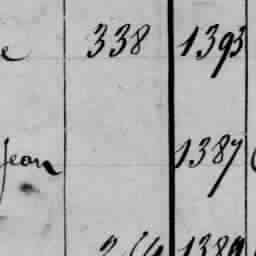 e 338 1393
Jean 1387